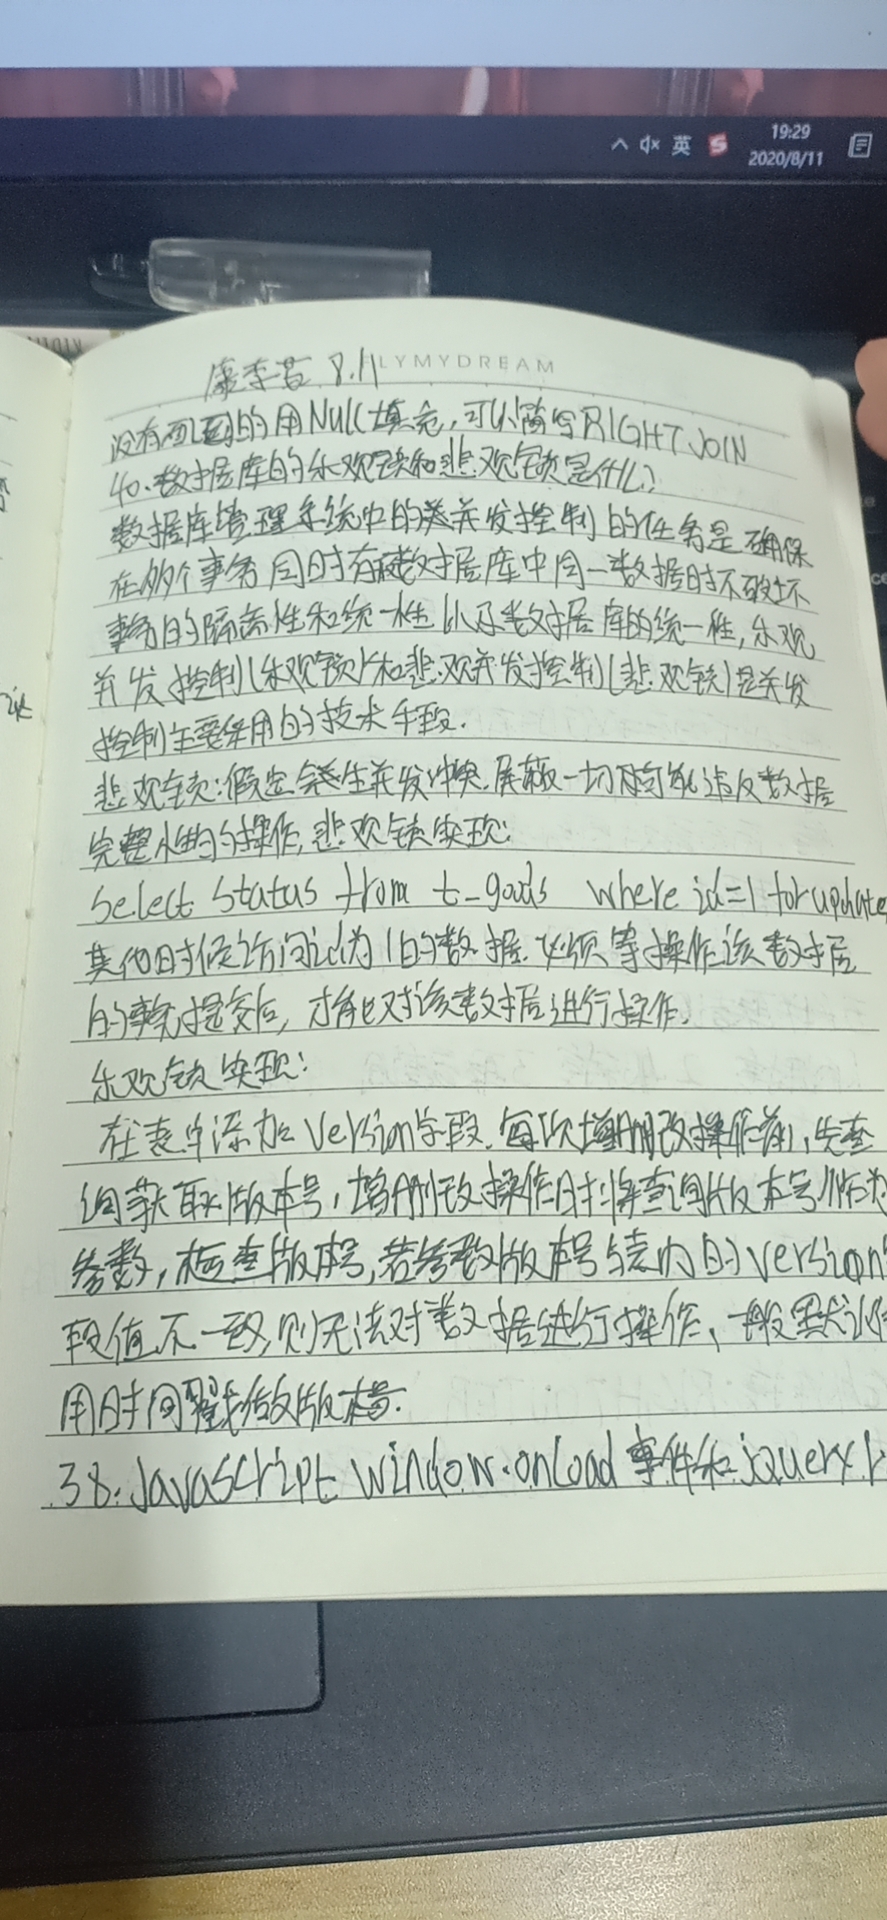 19:29
英
2020/8/11
LYMYDREAM
康李若 8.11
没有匹配到的用Null填充,可以简写RIGHT JOIN
40.数据库的乐观锁和悲观锁是什么?
数据库管理系统中的并发控制的任务是确保
在多个事务同时存取数据库中同一数据时不破坏
事务的隔离性和统一性以及数据库的统一性,乐观
并发控制(乐观锁)和悲观并发控制(悲观锁)是并发
控制主要采用的技术手段.
悲观锁:假定会发生并发冲突,屏蔽一切可能违反数据
完整性的操作,悲观锁实现:
Select status from t_goods where id=1 for update
其他时候访问id为1的数据.必须等操作该数据
的事务提交后,才能对该数据进行操作.
乐观锁实现:
在表中添加version字段.每次增删改操作前,先查
询获取版本号,增删改操作时将查询版本号作为
参数,检查版本号,若参数版本号与表内的version字
段值不一致,则无法对数据进行操作、一般默认使
用时间戳做版本号.
38.Javascript window.onload 事件和jquery